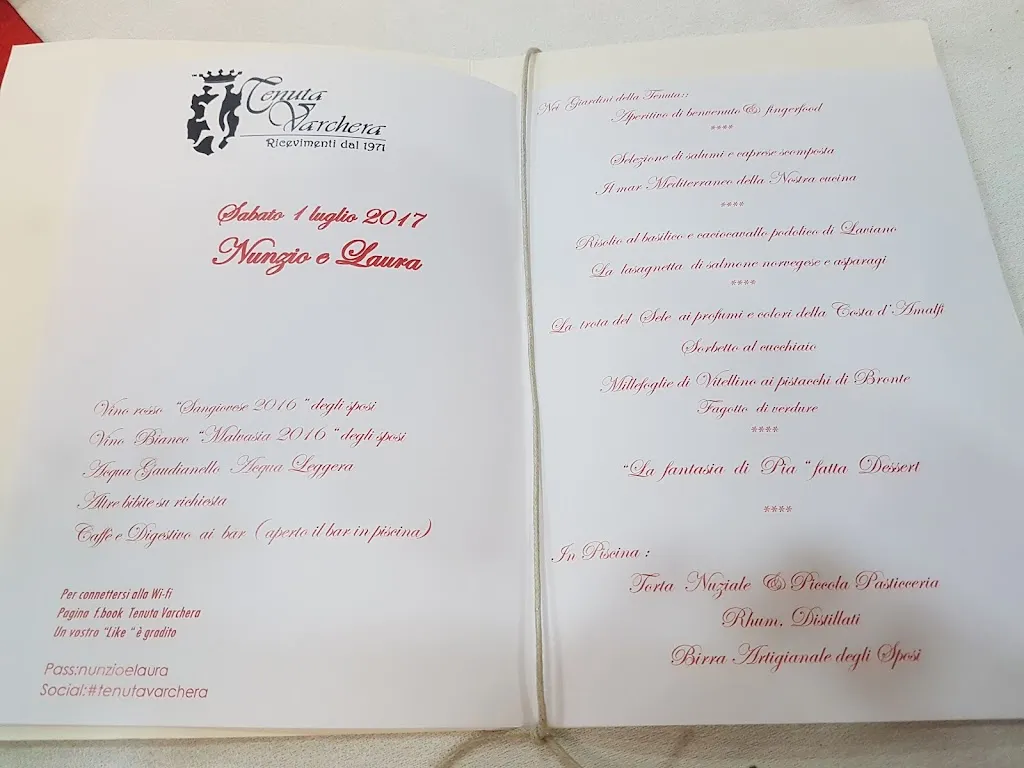 Tenuta
Varchera
Ricevimenti dal 1971
Sabato 1 luglio 2017
Nunzio e Laura
Vino rosso "Sangiovese 2016" degli sposi
Vino Bianco "Malvasia 2016" degli sposi
Acqua Gaudianello Acqua Leggera
Altre bibite su richiesta
Caffè e Digestivo ai bar (aperto il bar in piscina)
Per connettersi alla Wi-fi
Pagina f.book Tenuta Varchera
Un vostro "Like" è gradito
Pass:nunzioelaura
Social:#tenutavarchera
Nei Giardini della Tenuta::
Aperitivo di benvenuto & fingerfood
****
Selezione di salumi e caprese scomposta
Il mar Mediterraneo della Nostra cucina
****
Risolio al basilico e caciocavallo podolico di Laviano
La lasagnetta di salmone norvegese e asparagi
****
La trota del Sele ai profumi e colori della Costa d'Amalfi
Sorbetto al cucchiaio
Millefoglie di Vitellino ai pistacchi di Bronte
Fagotto di verdure
****
"La fantasia di Pia" fatta Dessert
****
In Piscina :
Torta Nuziale & Piccola Pasticceria
Rhum, Distillati
Birra Artigianale degli Sposi